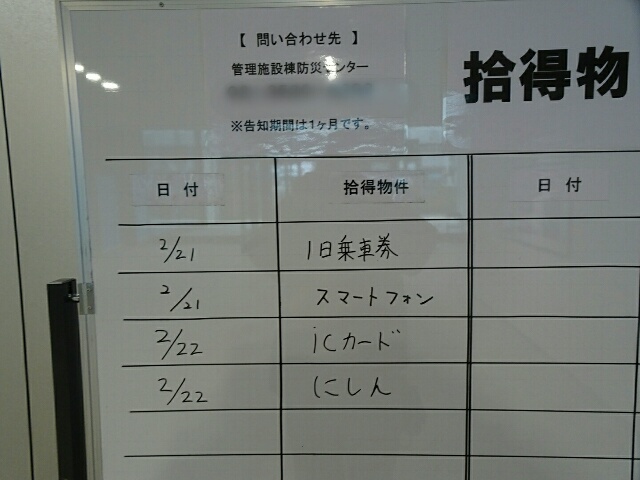 【 問い合わせ先 】
管理施設棟防災センター
※告知期間は1ヶ月です。
拾得物
日付 拾得物件 日付
2/21 1日乗車券
2/21 スマートフォン
2/22 icカード
2/22 にしん